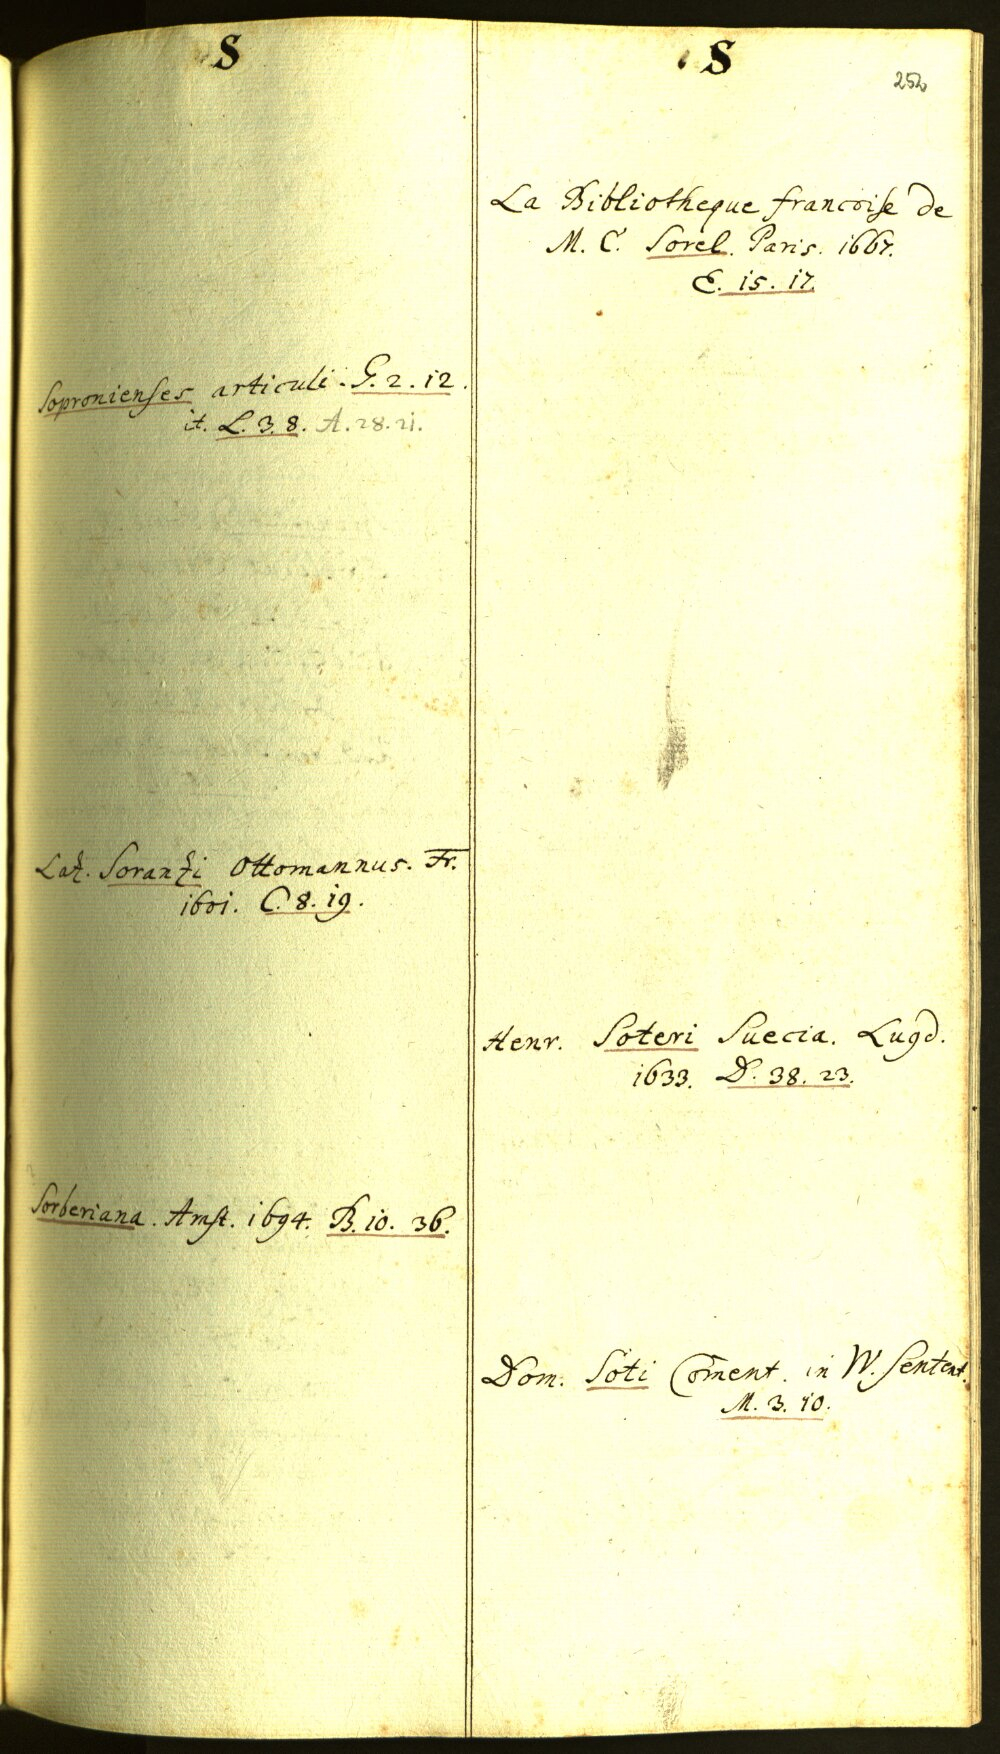 S
Sopronienses articuli. G. 2. 12.
it. L. 3. 8. A. 28. 21.
Laz. Soranzi Ottomannus. Fr.
1601. C. 8. 19.
Sorberiana. Amst. 1694. B. 10. 36.
S
252
La Bibliotheque francoise de
M. C. Sorel. Paris. 1667.
E. 15. 17.
Henr. Soteri Suecia. Lugd.
1633. D. 38. 23.
Dom. Soti Com̄ent. in IV. Sentent.
M. 3. 10.